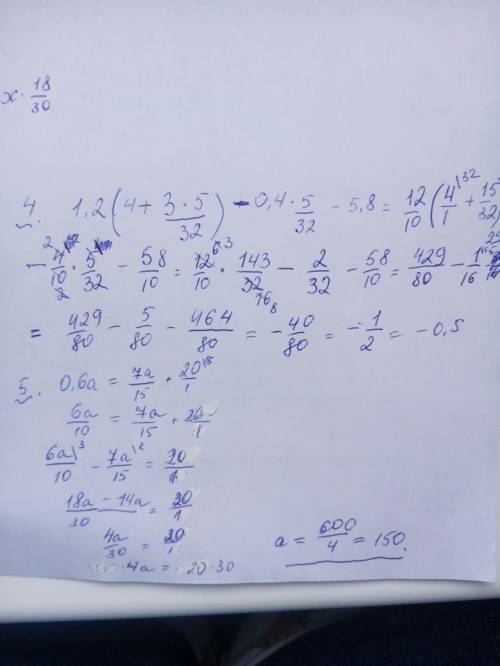 x · 18/30.
4. 1,2(4 + 3·5/32) - 0,4 · 5/32 - 5,8 = 12/10 (4/1 \32 + 15/32
- 4/10 · 5/32 - 58/10 = 12/10 · 143/32 - 2/32 - 58/10 = 429/80 - 1/16
= 429/80 - 5/80 - 464/80 = - 40/80 = - 1/2 = - 0,5
5. 0,6a = 7a/15 + 20/1
6a/10 = 7a/15 + 20/1
6a/10 \3 - 7a/15 \2 = 20/1
18a - 14a/30 = 20/1
4a/30 = 20/1 a = 600/4 = 150.
4a = 20·30